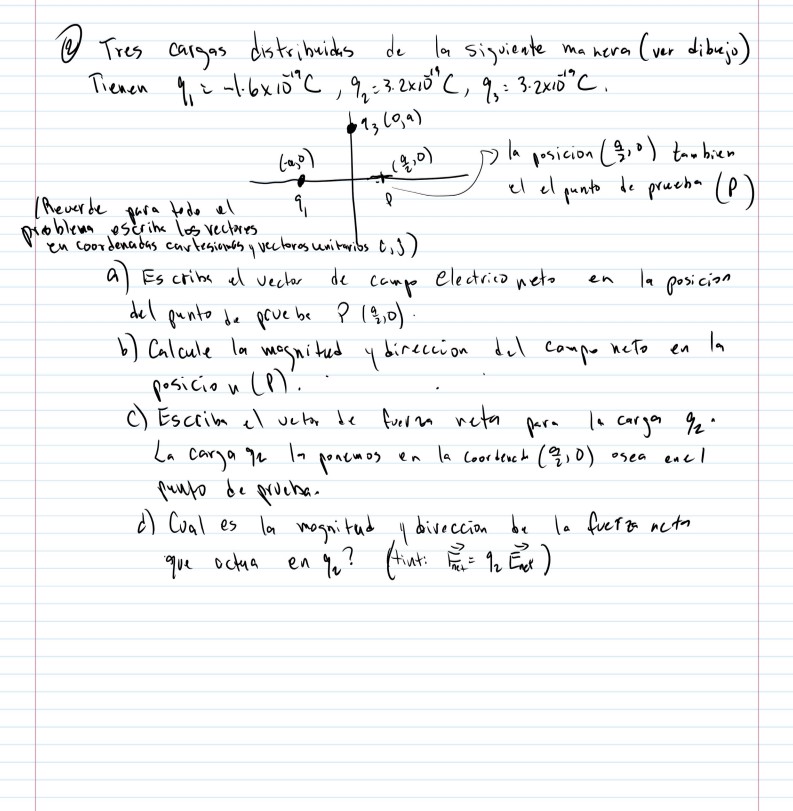 ② Tres cargas distribuidas de la siguiente manera (ver dibujo)
Tienen q₁ = -1.6x10⁻¹⁹C , q₂ = 3.2x10⁻¹⁹C, q₃ = 3.2x10⁻¹⁹C.
q₃ (0,a)
(-a,0)
(a/2,0)
la posicion (a/2,0) tambien
el el punto de prueba (P)
q₁
P
(Recuerde para todo el
problema escriba los vectores
en coordenadas cartesianas y vectores unitarios i, j)
a) Escriba el vector de campo electrico neto en la posicion
del punto de prueba P (a/2,0).
b) Calcule la magnitud y direccion del campo neto en la
posicion (P).
c) Escriba el vector de fuerza neta para la carga q₂.
La carga q₂ la ponemos en la coordenada (a/2,0) osea en el
punto de prueba.
d) Cual es la magnitud y direccion de la fuerza neta
que actua en q₂? (Hint: = q₂ E⃗net)